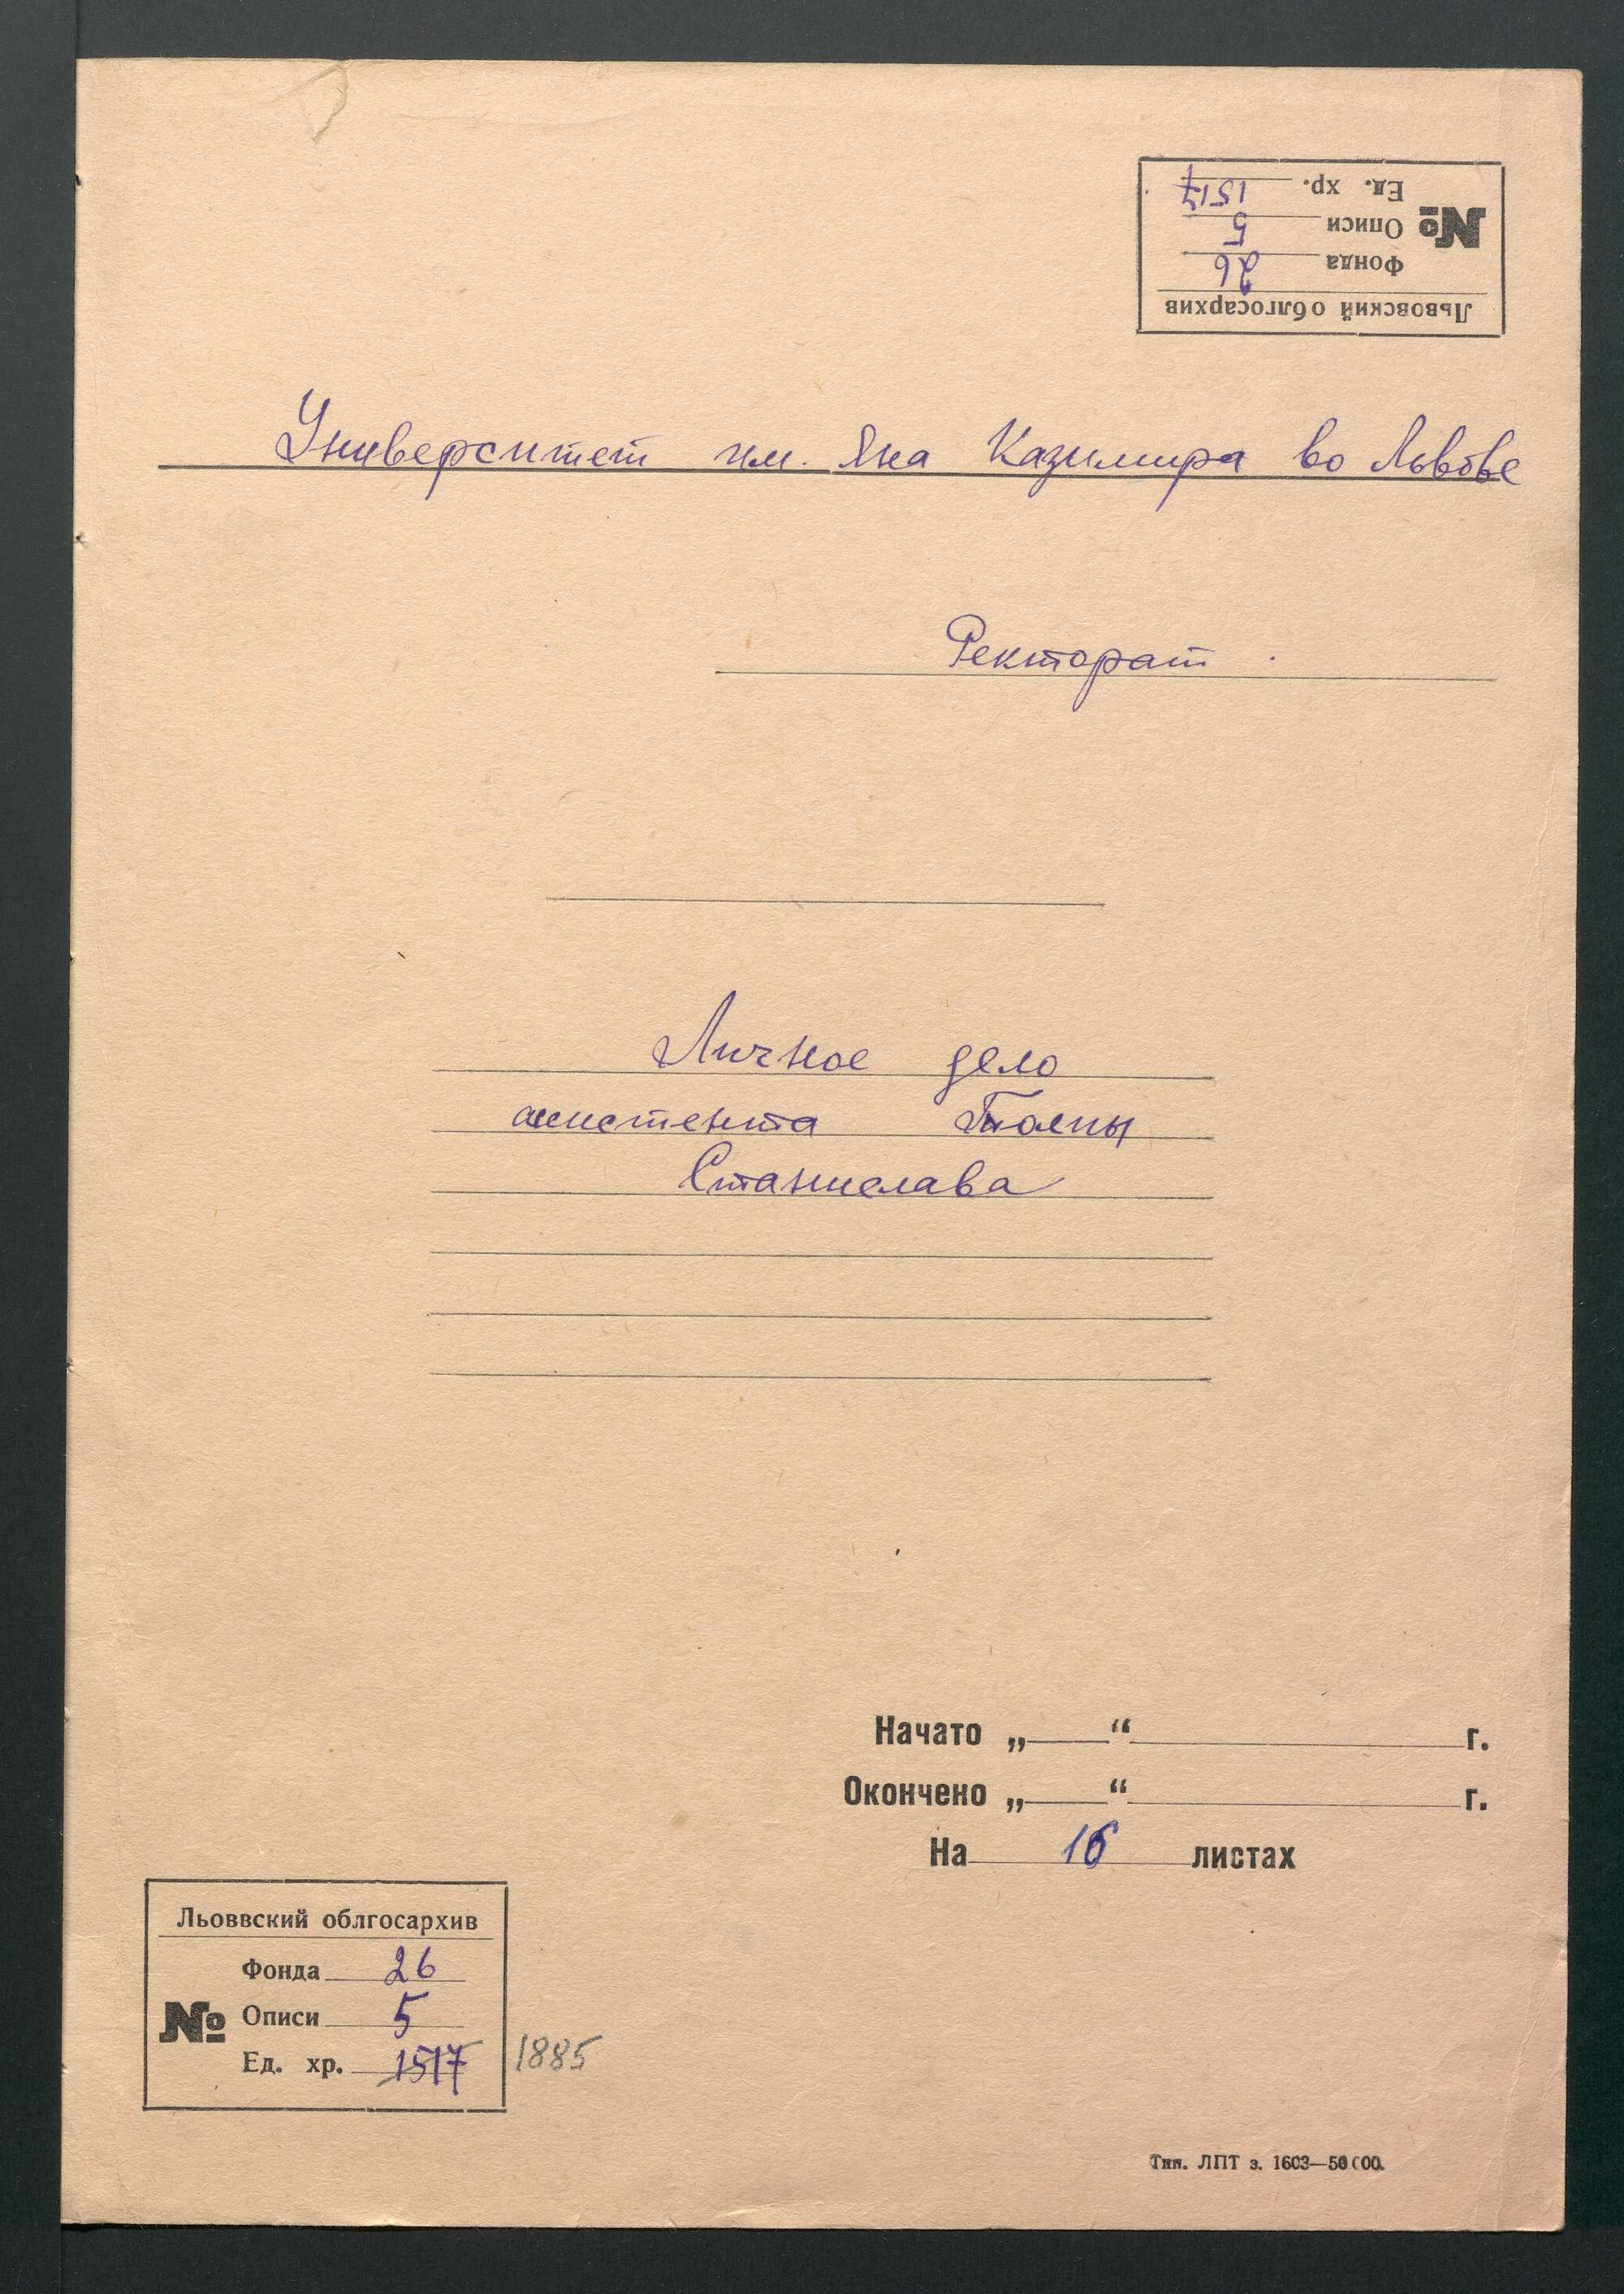 Львовский облгосархив
Фонда 26
№ Описи 5
Ед. хр. 1517
Университет им. Яна Казимира во Львове
Ректорат
Личное дело
ассистента
Станислава
Начато „ “ г.
Окончено „ “ г.
На 16 листах
Льоввский облгосархив
Фонда 26
№ Описи 5
Ед. хр. 1517 1885
Тип. ЛПТ з. 1603—50000.